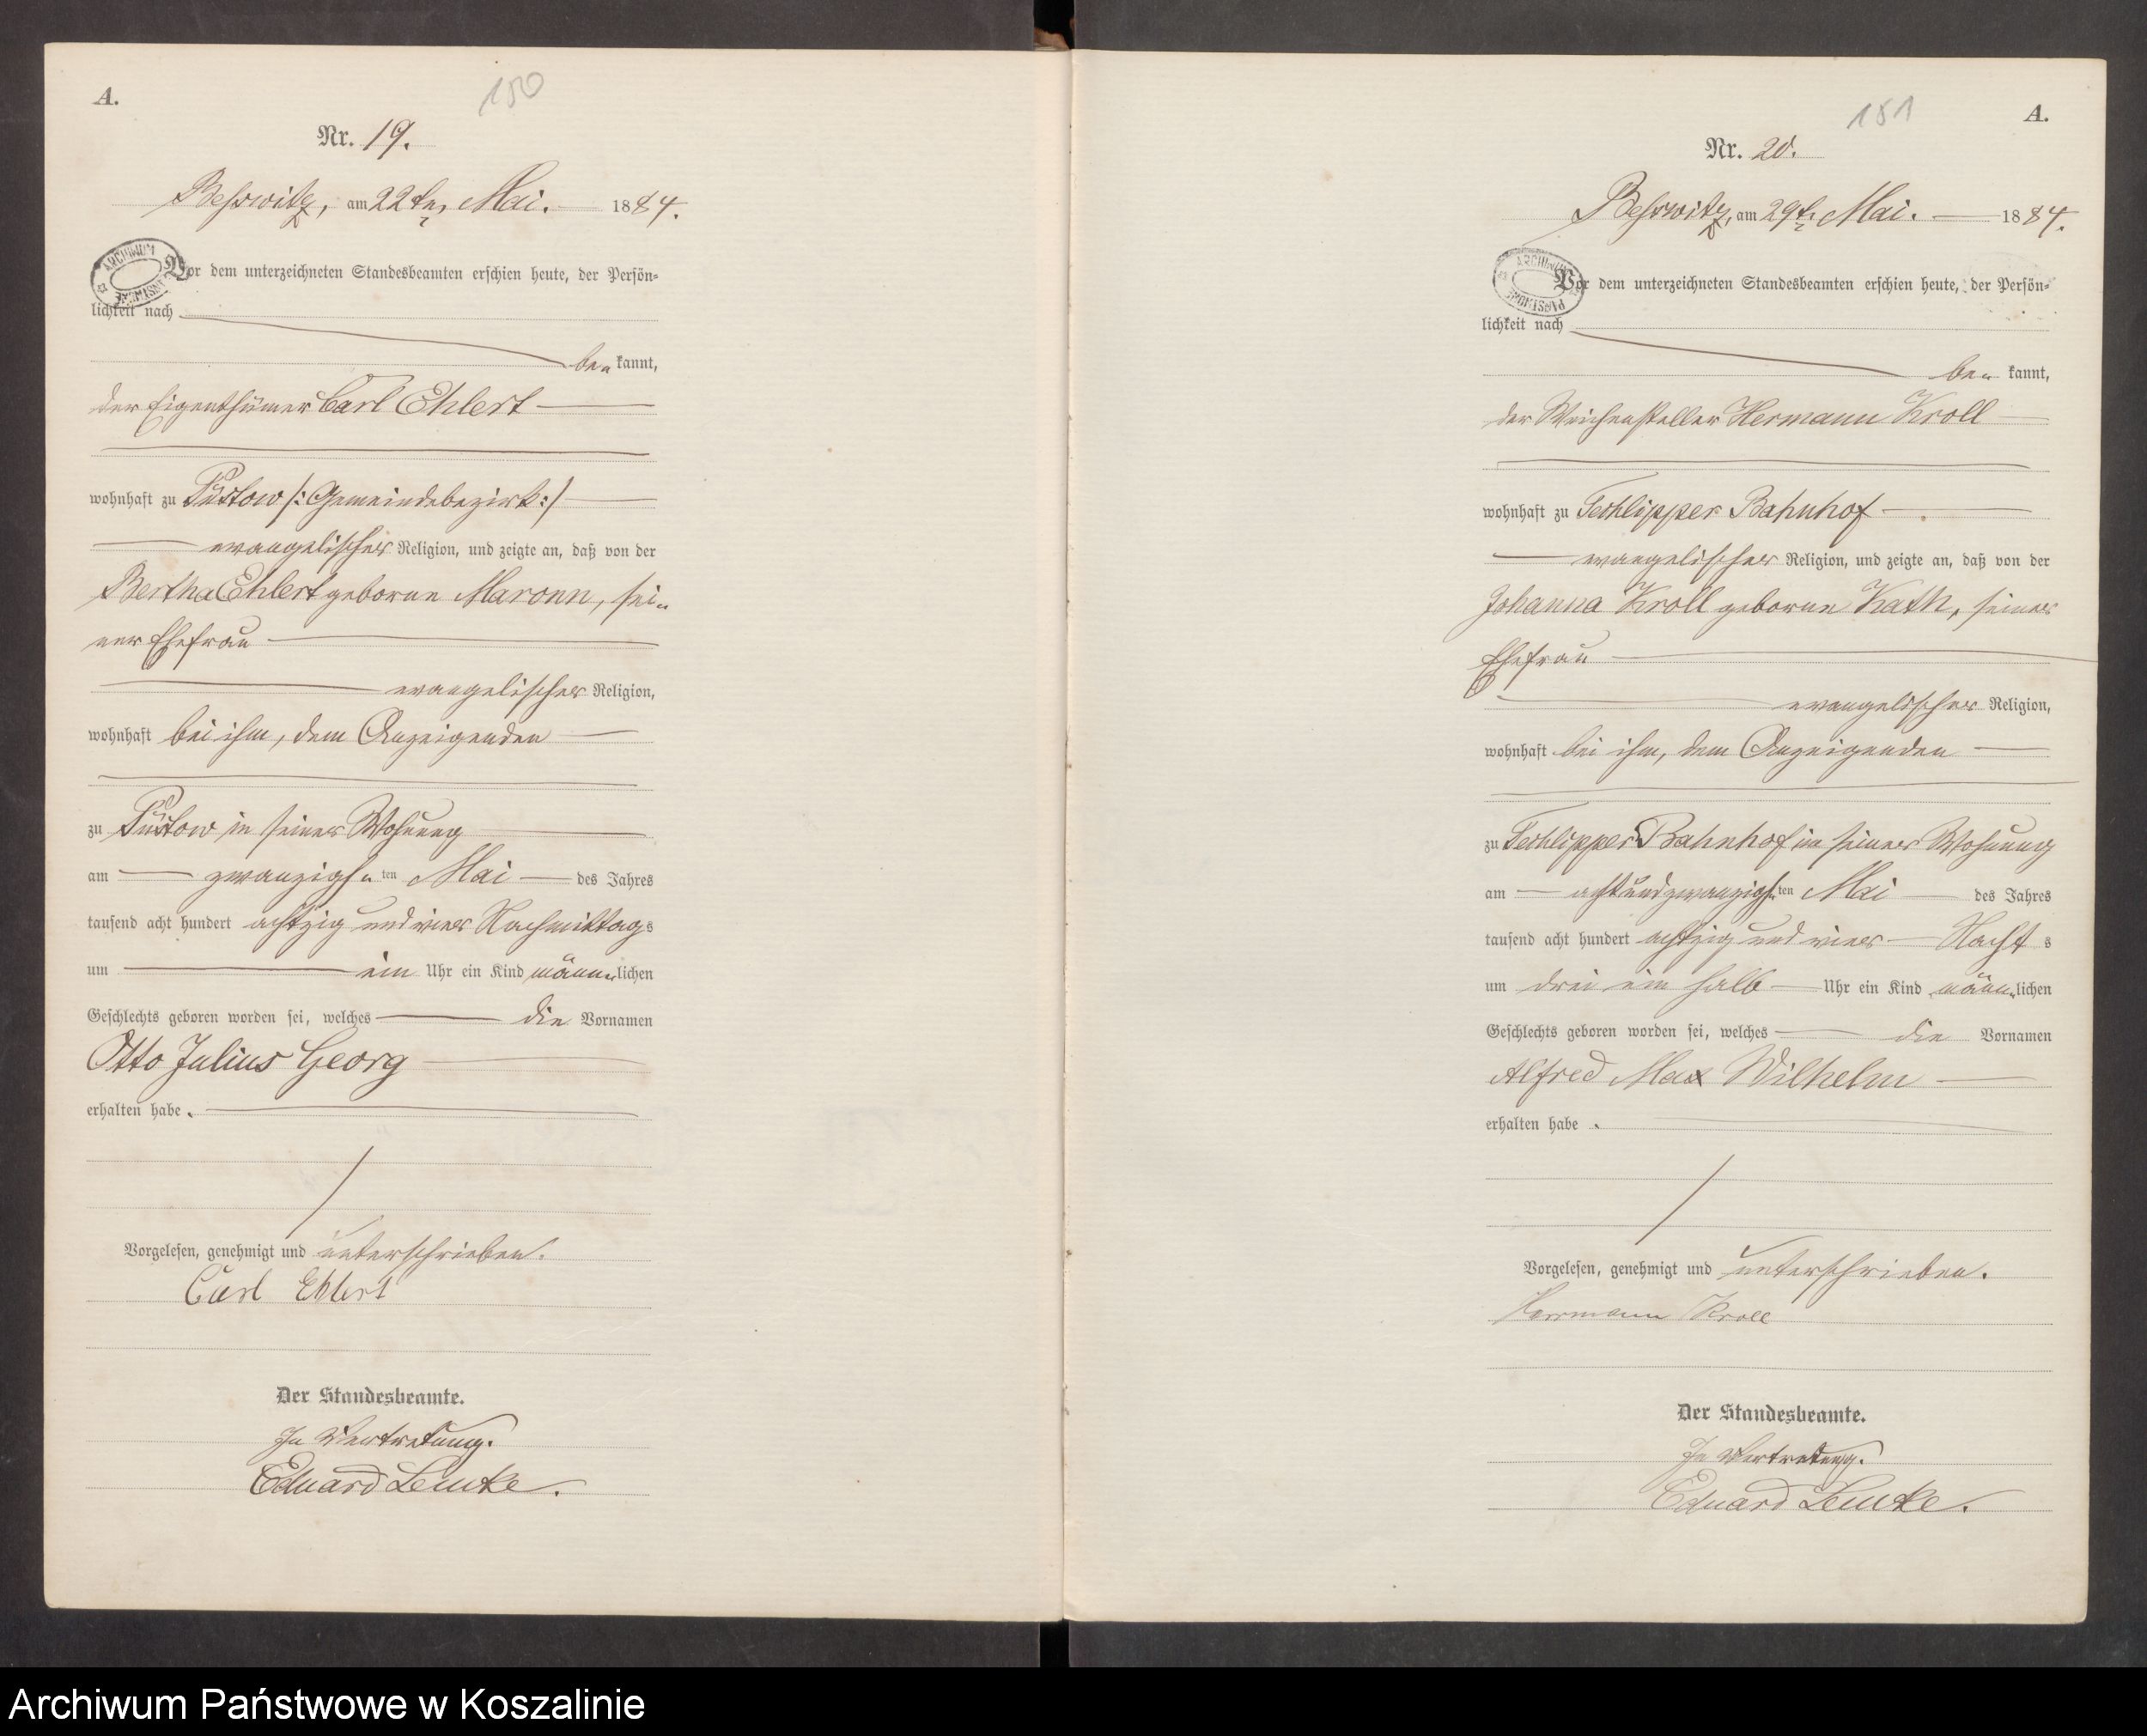 A.
150
Nr. 19.
Besswitz, am 22ten Mai. 1884.
Vor dem unterzeichneten Standesbeamten erschien heute, der Persön-
lichkeit nach
be- kannt,
der Eigenthümer Carl Ehlert
wohnhaft zu Püstow /: Gemeindebezirk :/
evangelischer Religion, und zeigte an, daß von der
Bertha Ehlert geborne Maronn, sei-
ner Ehefrau
evangelischer Religion,
wohnhaft bei ihm, dem Anzeigenden
zu Püstow in seiner Wohnung
am zwanzigsten Mai des Jahres
tausend acht hundert achtzig und vier Nachmittags
um ein Uhr ein Kind männlichen
Geschlechts geboren worden sei, welches die Vornamen
Otto Julius Georg
erhalten habe.
Vorgelesen, genehmigt und unterschrieben.
Carl Ehlert
Der Standesbeamte.
In Vertretung.
Eduard Lemke.
151
A.
Nr. 20.
Besswitz, am 29t. Mai. 1884.
Vor dem unterzeichneten Standesbeamten erschien heute, der Persön-
lichkeit nach
be- kannt,
der Weichensteller Hermann Kroll
wohnhaft zu Techlipper Bahnhof
evangelischer Religion, und zeigte an, daß von der
Johanna Kroll geborne Kath, seiner
Ehefrau
evangelischer Religion,
wohnhaft bei ihm, dem Anzeigenden
zu Techlipper Bahnhof in seiner Wohnung
am achtundzwanzigsten Mai des Jahres
tausend acht hundert achtzig und vier Nachts
um drei ein halb Uhr ein Kind männlichen
Geschlechts geboren worden sei, welches die Vornamen
Alfred Max Wilhelm
erhalten habe.
Vorgelesen, genehmigt und unterschrieben.
Herrmann Kroll
Der Standesbeamte.
In Vertretung.
Eduard Lemke.
Archiwum Państwowe w Koszalinie